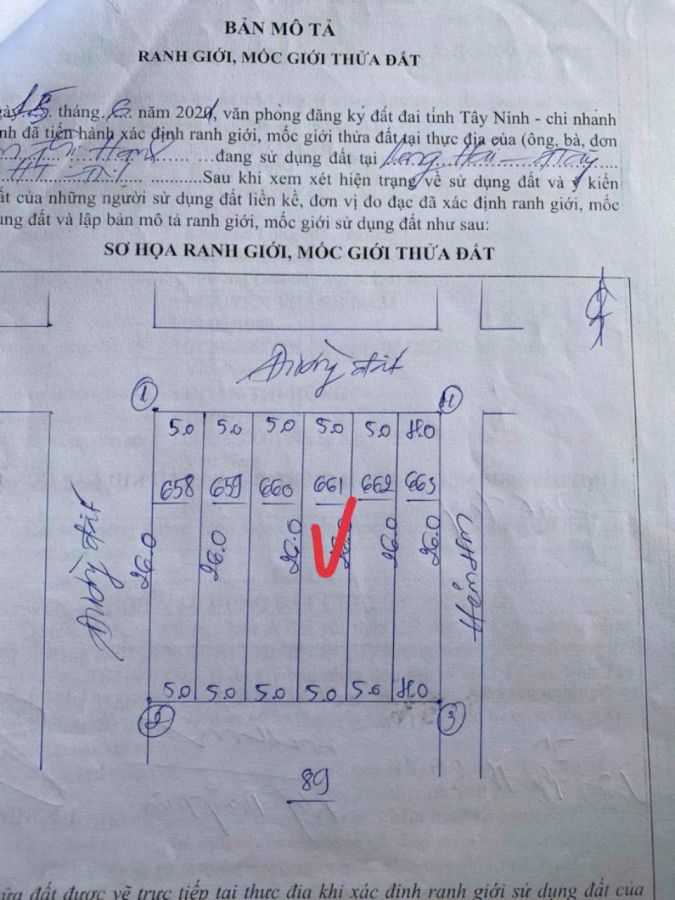 BẢN MÔ TẢ
RANH GIỚI, MỐC GIỚI THỬA ĐẤT
gày 15 tháng 6 năm 2021, văn phòng đăng ký đất đai tỉnh Tây Ninh - chi nhánh
nh đã tiến hành xác định ranh giới, mốc giới thửa đất tại thực địa của (ông, bà, đơn
đang sử dụng đất tại Long Hải -
Sau khi xem xét hiện trạng về sử dụng đất và ý kiến
ất của những người sử dụng đất liền kề, đơn vị đo đạc đã xác định ranh giới, mốc
ụng đất và lập bản mô tả ranh giới, mốc giới sử dụng đất như sau:
SƠ HỌA RANH GIỚI, MỐC GIỚI THỬA ĐẤT
Đường đất
1 4
5.0 5.0 5.0 5.0 5.0 4.0
658 659 660 661 662 663
26.0 26.0 26.0 26.0 26.0 26.0
Đường đất
5.0 5.0 5.0 5.0 5.0 4.0
2 3
89
ửa đất được vẽ trực tiếp tại thực địa khi xác định ranh giới sử dụng đất của